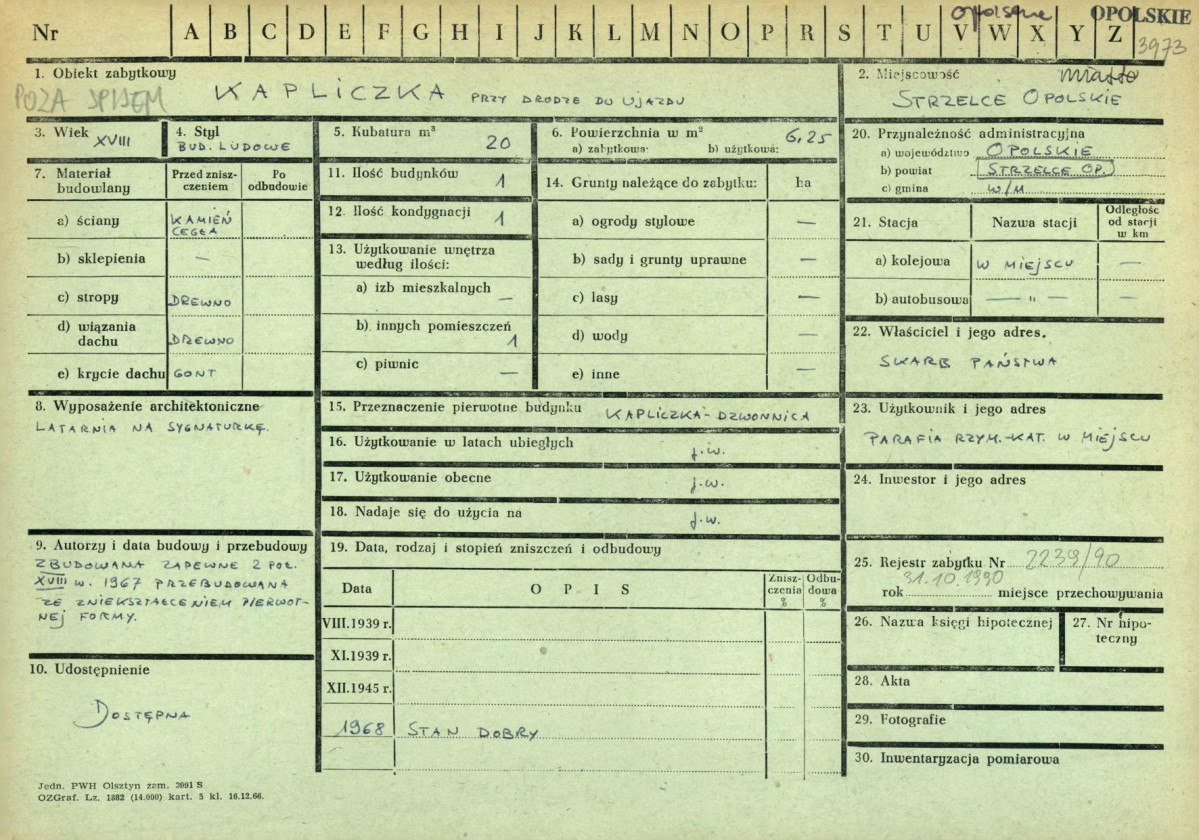 Nr A B C D E F G H I J K L M N O P R S T U V W X Y Z
opolskie OPOLSKIE
3973
1. Obiekt zabytkowy
POZA SPISEM
KAPLICZKA PRZY DRODZE DO UJAZDU
2. Miejscowość miasto
STRZELCE OPOLSKIE
3. Wiek XVIII
4. Styl
BUD. LUDOWE
5. Kubatura m³ 20
6. Powierzchnia w m² 6,25
a) zabytkowa: b) użytkowa:
7. Materiał budowlany
Przed zniszczeniem
Po odbudowie
a) ściany KAMIEŃ
CEGŁA
b) sklepienia —
c) stropy DREWNO
d) wiązania
dachu DREWNO
e) krycie dachu GONT
8. Wyposażenie architektoniczne
LATARNIA NA SYGNATURKĘ.
9. Autorzy i data budowy i przebudowy
ZBUDOWANA ZAPEWNE 2 POŁ.
XVIII W. 1967 PRZEBUDOWANA
ZE ZNIEKSZTAŁCENIEM PIERWOT-
NEJ FORMY.
10. Udostępnienie
DOSTĘPNA
11. Ilość budynków 1
12. Ilość kondygnacji 1
13. Użytkowanie wnętrza
według ilości:
a) izb mieszkalnych —
b) innych pomieszczeń 1
c) piwnic —
14. Grunty należące do zabytku: ha
a) ogrody stylowe —
b) sady i grunty uprawne —
c) lasy —
d) wody —
e) inne —
15. Przeznaczenie pierwotne budynku KAPLICZKA-DZWONNICA
16. Użytkowanie w latach ubiegłych j.w.
17. Użytkowanie obecne j.w.
18. Nadaje się do użycia na j.w.
19. Data, rodzaj i stopień zniszczeń i odbudowy
Data O P I S Zniszczenia % Odbudowa %
VIII.1939 r.
XI.1939 r.
XII.1945 r.
1968 STAN DOBRY
20. Przynależność administracyjna
a) województwo OPOLSKIE
b) powiat STRZELCE OP.
c) gmina W/M
21. Stacja Nazwa stacji Odległość
od stacji
w km
a) kolejowa W MIEJSCU —
b) autobusowa — " — —
22. Właściciel i jego adres.
SKARB PAŃSTWA
23. Użytkownik i jego adres
PARAFIA RZYM.-KAT. W MIEJSCU
24. Inwestor i jego adres
25. Rejestr zabytku Nr 2239/90
31.10.1990
rok miejsce przechowywania
26. Nazwa księgi hipotecznej
27. Nr hipo-
teczny
28. Akta
29. Fotografie
30. Inwentaryzacja pomiarowa
Jedn. PWH Olsztyn zam. 3991 S
OZGraf. Lz. 1882 (14.000) kart. 5 kl. 16.12.66.